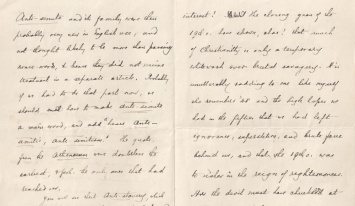 Anti-semite and its family were then
probably very new in English use, and
not thought likely to be more than passing
nonce-words, & hence they did not receive
treatment in a separate article. Probably
if we had to do that part now, we
should have to make Anti-semite
a main word, and add "hence Anti-
semitic, Anti-semitism". The quote
from the Athenaeum was doubtless the
earliest, if not the only one that had
reached us.
You will see that Anti-slavery which
interest! the closing years of the
19th c. have shown, alas! that much
of Christianity is only a temporary
whitewash over brutal savagery. It is
unutterably saddening to one like myself
who remembers '48 and the high hopes we
had in the fifties that we had left
ignorance, superstition, and brute force
behind us, and that the 19th c. was
to usher in the reign of righteousness.
How the devil must have chuckled at